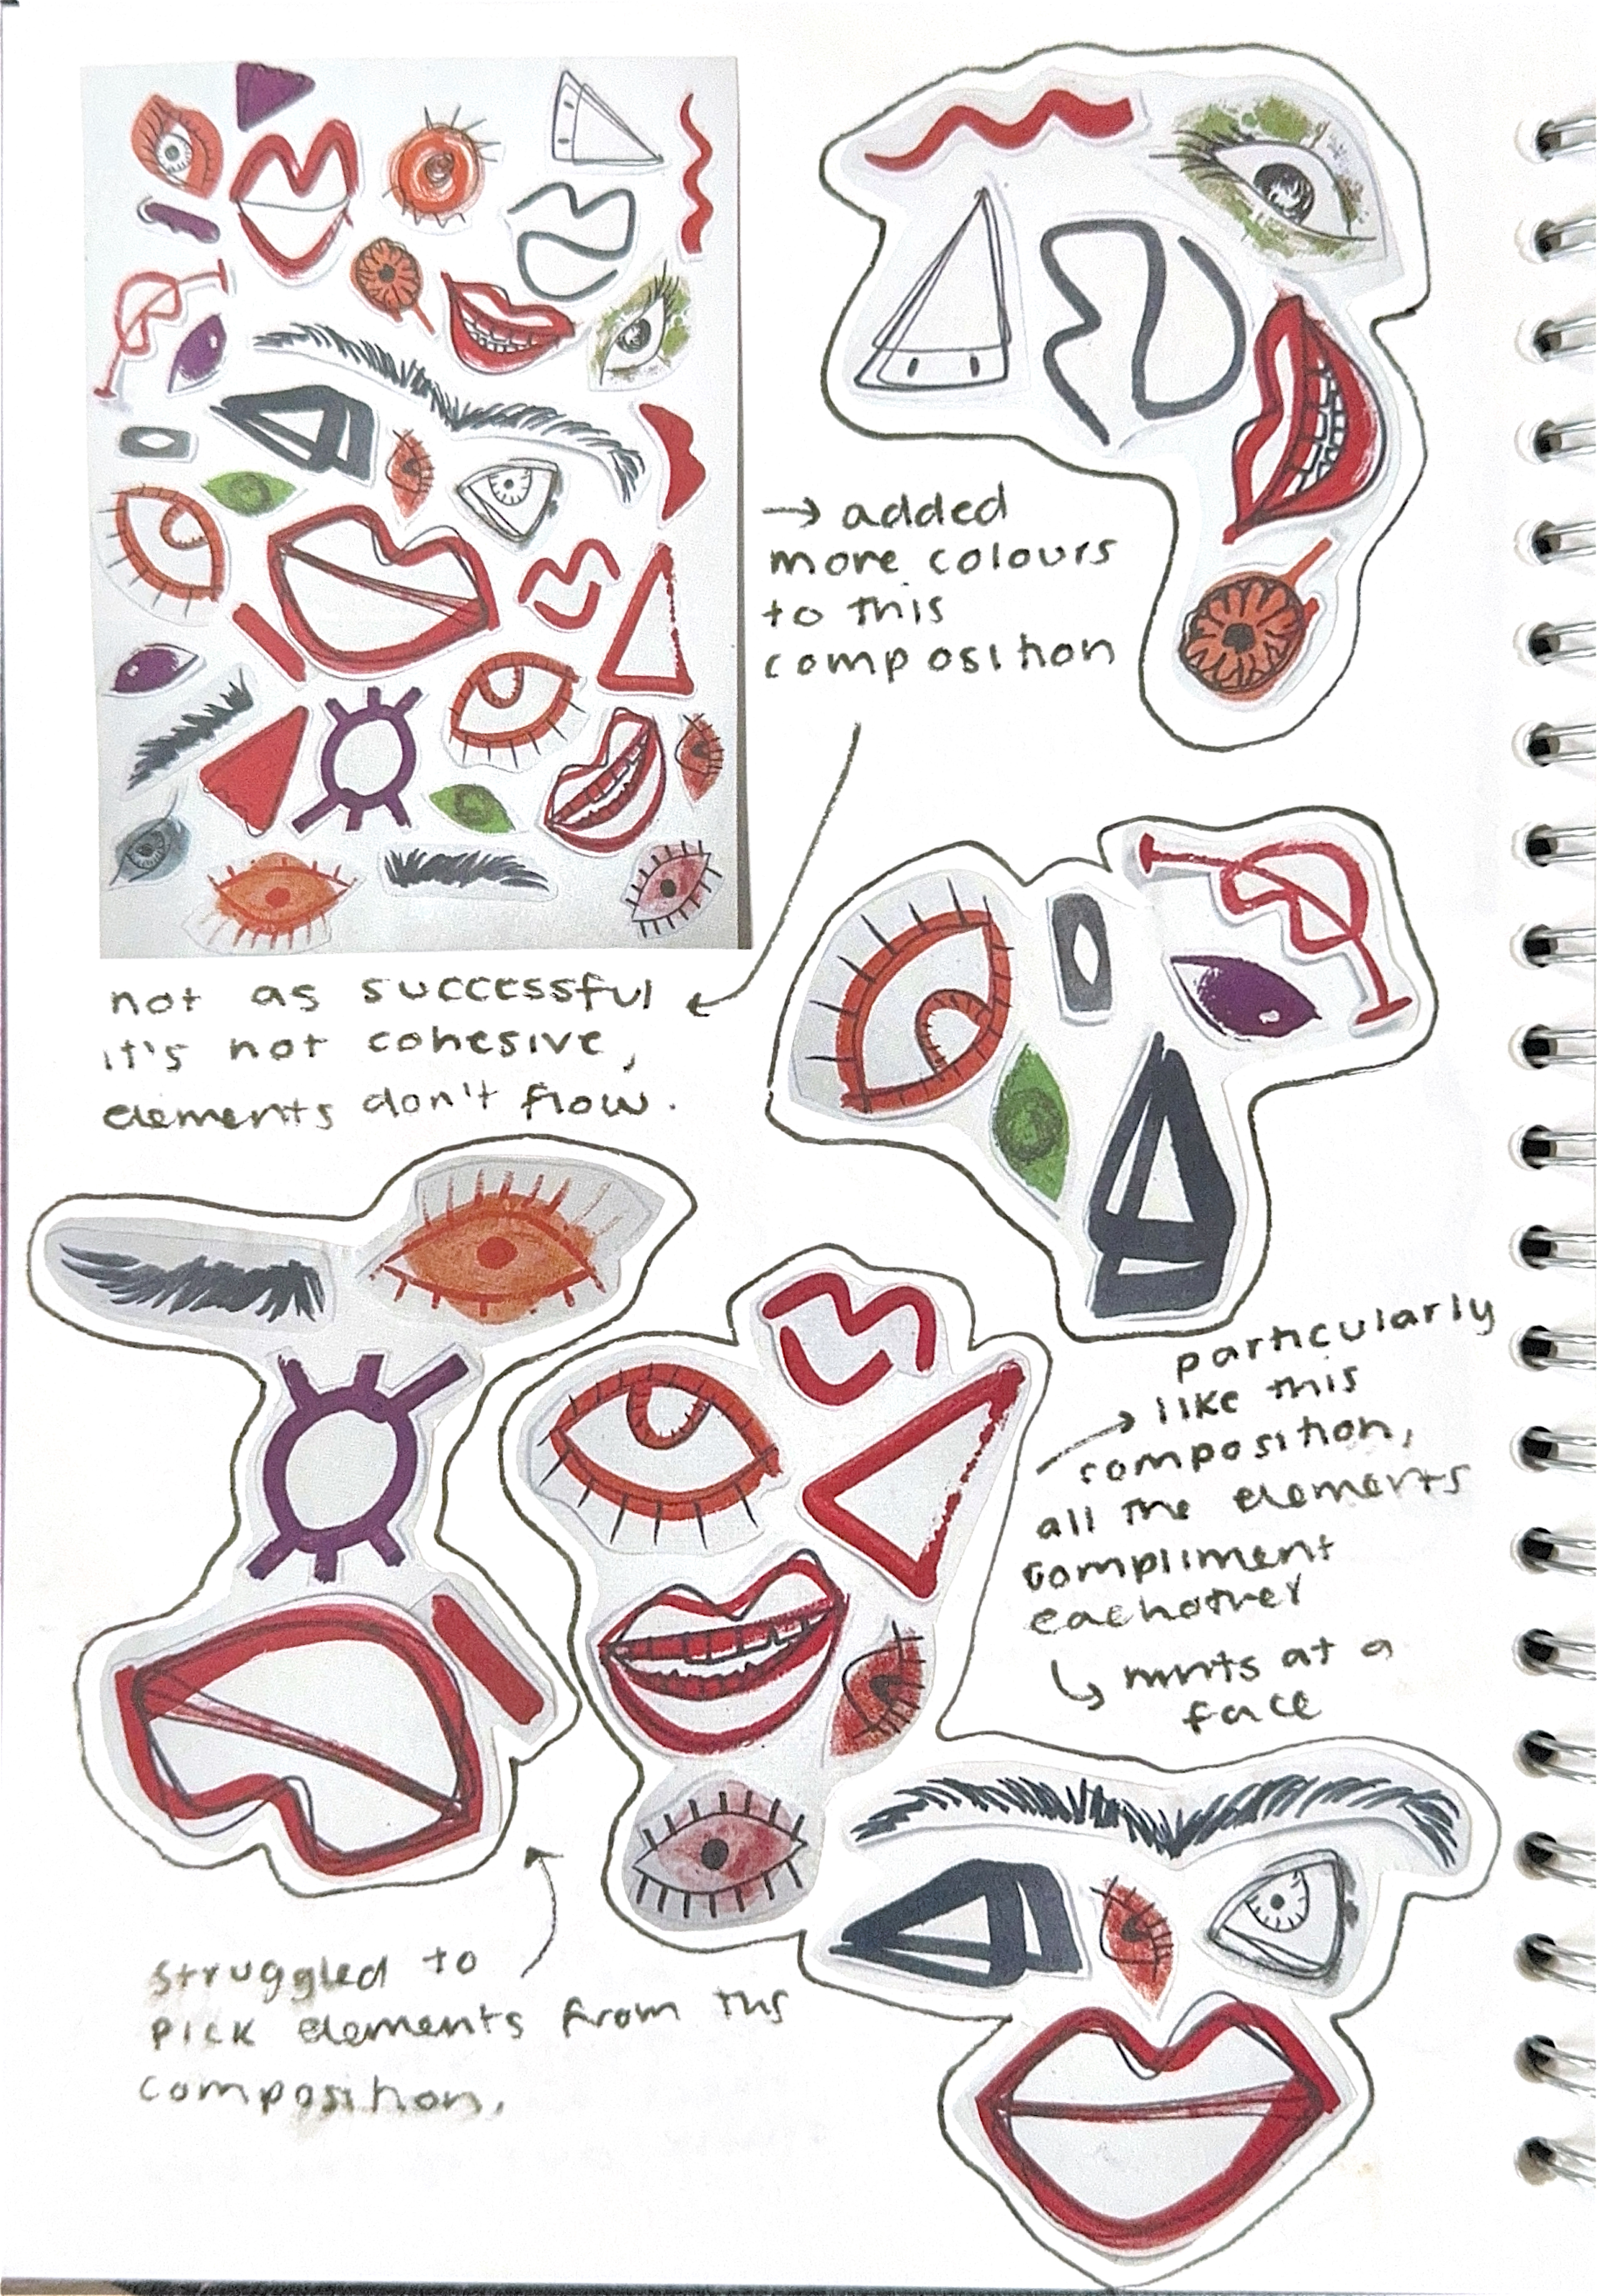 → added
more colours
to this
composition
not as successful
it's not cohesive,
elements don't flow.
particularly
→ like this
composition,
all the elements
compliment
eachother
↳ hints at a
face
struggled to
pick elements from this
composition.